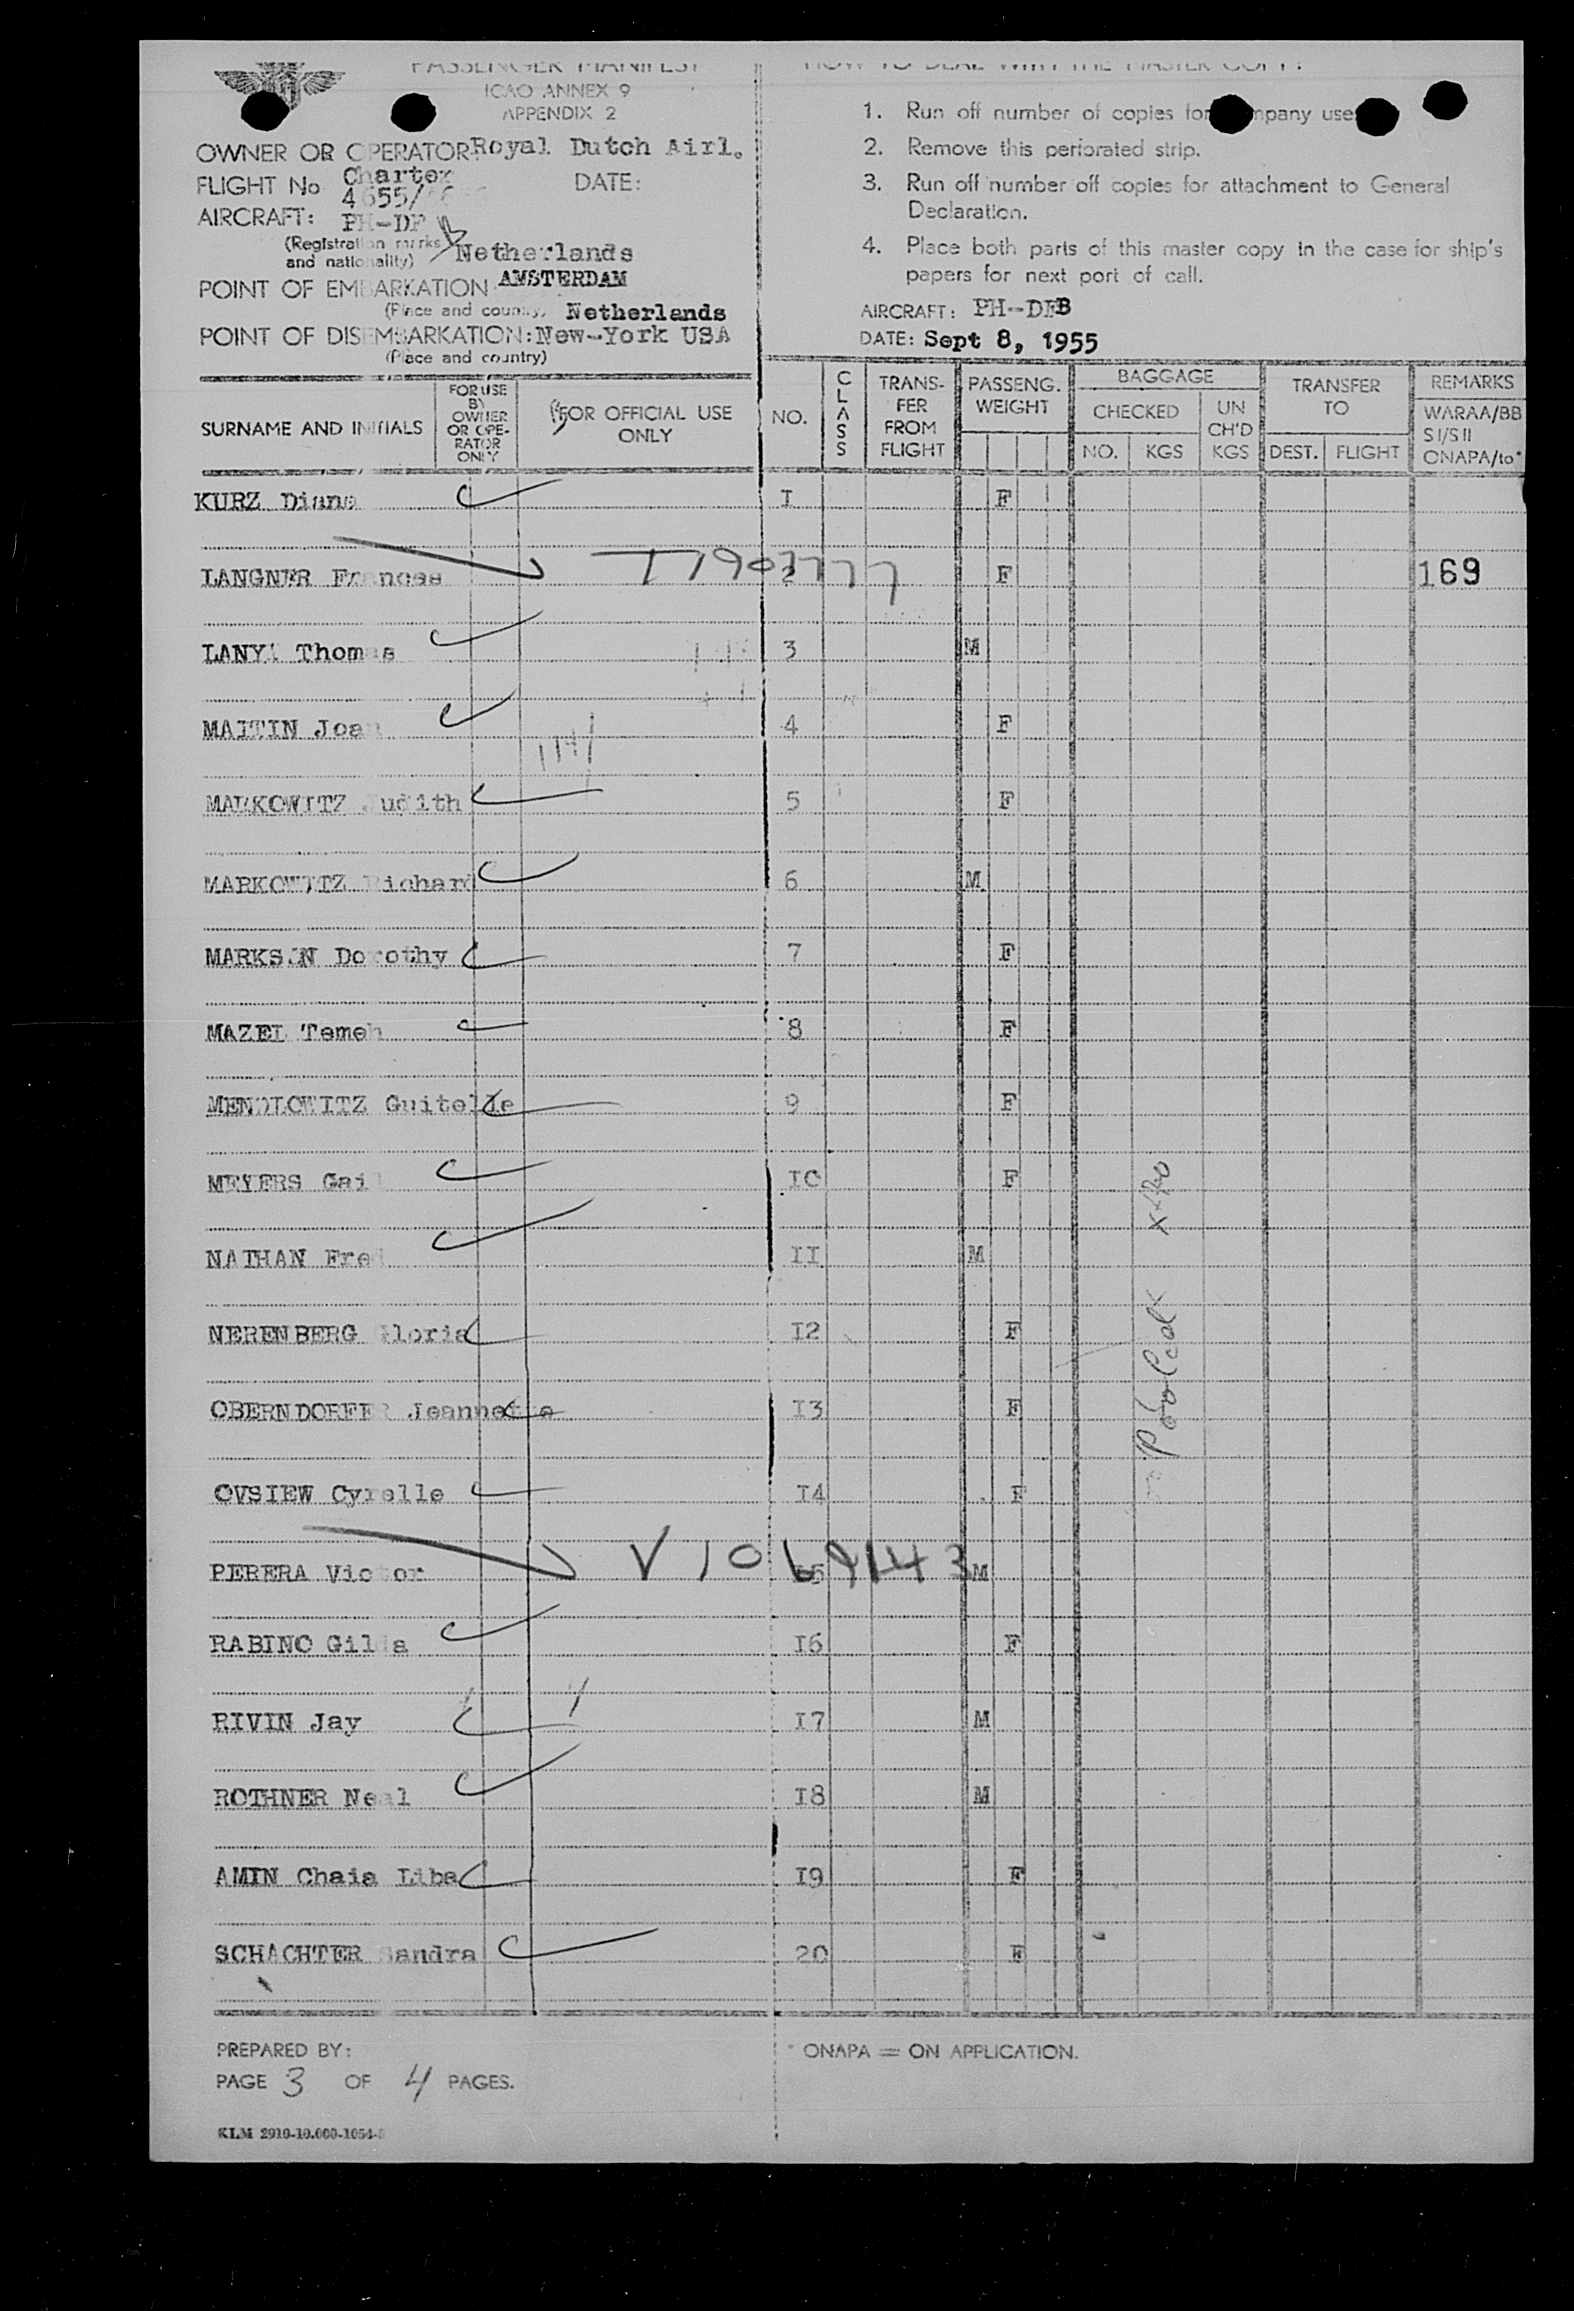 PASSENGER MANIFEST
ICAO ANNEX 9
APPENDIX 2
OWNER OR OPERATOR: Royal Dutch Airl.
FLIGHT No Charter
4655/
DATE:
AIRCRAFT: PH-DF
(Registration marks and nationality) Netherlands
POINT OF EMBARKATION AMSTERDAM
(Place and country) Netherlands
POINT OF DISEMBARKATION: New-York USA
(Place and country)
HOW TO DEAL WITH THE MASTER COPY:
1. Run off number of copies for company use
2. Remove this perforated strip.
3. Run off number off copies for attachment to General
Declaration.
4. Place both parts of this master copy in the case for ship's
papers for next port of call.
AIRCRAFT: PH-DFB
DATE: Sept 8, 1955
SURNAME AND INITIALS
FOR USE BY OWNER OR OPE-RATOR ONLY
FOR OFFICIAL USE ONLY
NO.
CLASS
TRANS-FER FROM FLIGHT
PASSENG. WEIGHT
BAGGAGE
CHECKED
NO. KGS
UN CH'D KGS
TRANSFER TO
DEST. FLIGHT
REMARKS
WARAA/BB
SI/SII
ONAPA/to*
KURZ Diana 1 F
LANGNER Frances T1903777 2 F 169
LANYI Thomas 3 M
MAITIN Joan 4 F
MARKOWITZ Judith 5 F
MARKOWITZ Richard 6 M
MARKSON Dorothy 7 F
MAZEL Temeh 8 F
MENDLOWITZ Guitelle 9 F
MEYERS Gail 10 F
NATHAN Fred 11 M
NERENBERG Gloria 12 F
OBERNDORFER Jeannette 13 F
OVSIEW Cyrelle 14 F
PERERA Victor V1069143 15 M
RABINO Gilda 16 F
RIVIN Jay 17 M
ROTHNER Neal 18 M
AMIN Chaia Liba 19 F
SCHACHTER Sandra 20 F
PREPARED BY:
PAGE 3 OF 4 PAGES.
* ONAPA = ON APPLICATION.
KLM 2910-10.000-1054-